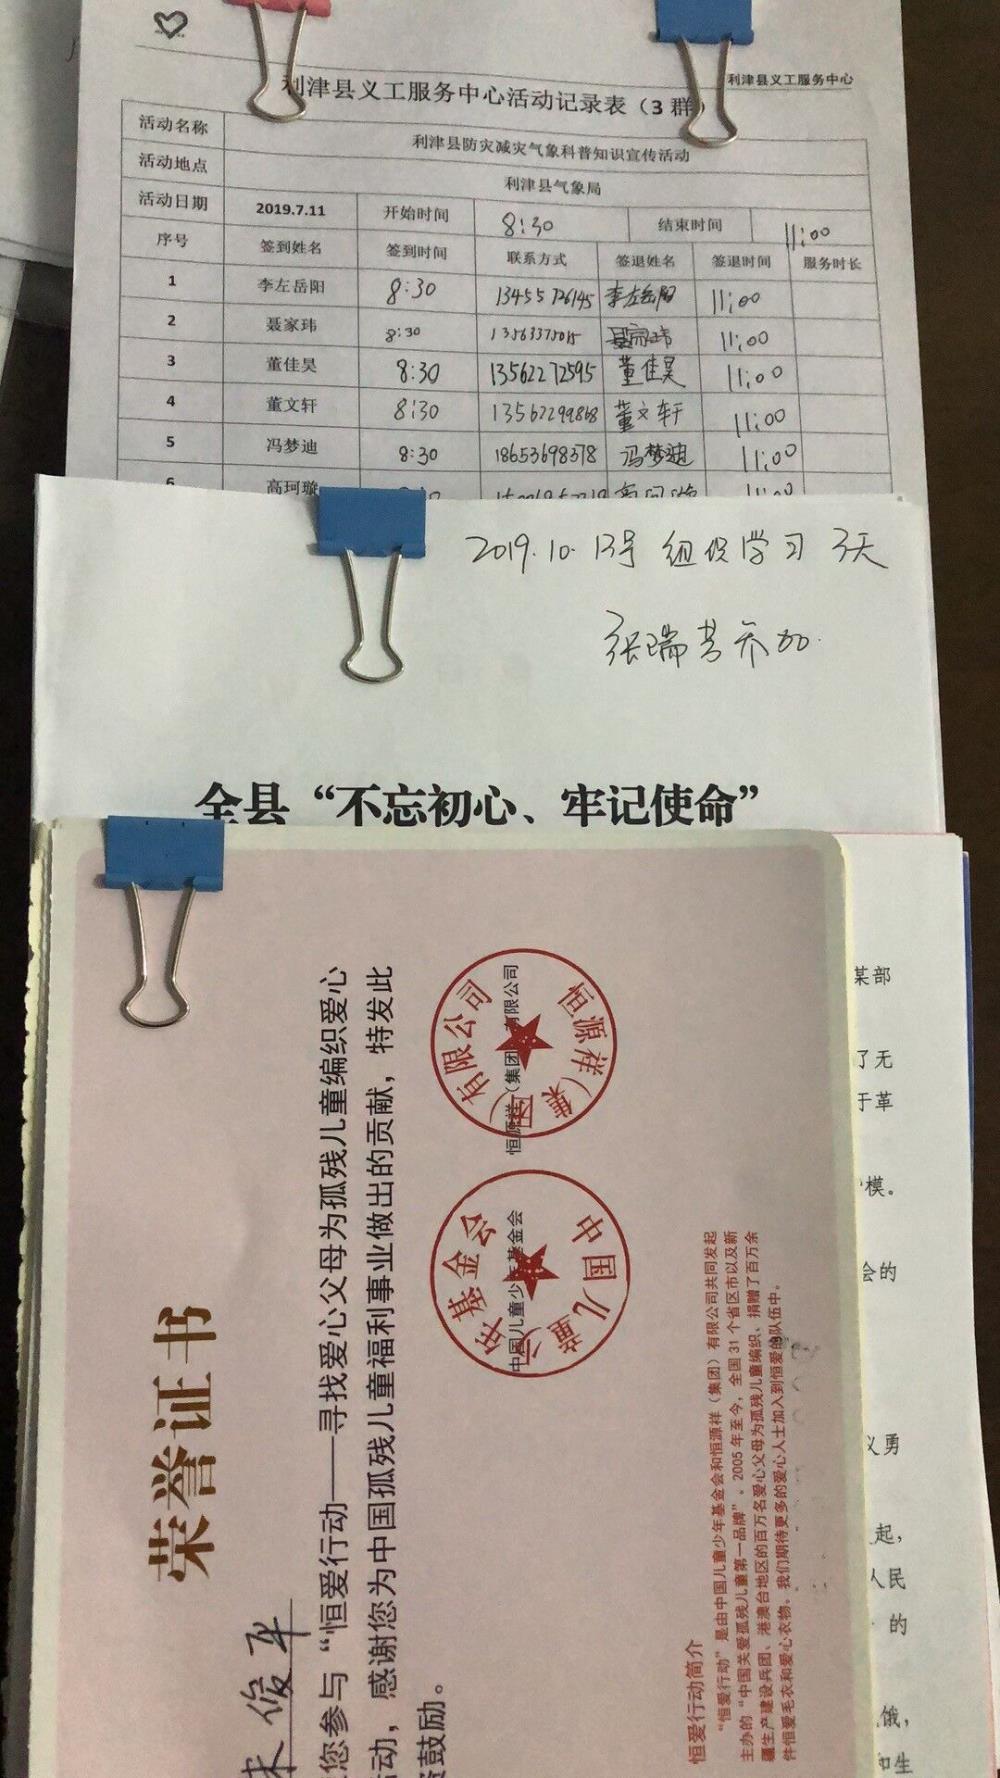 利津县义工服务中心
利津县义工服务中心活动记录表（3群）
活动名称 利津县防灾减灾气象科普知识宣传活动
活动地点 利津县气象局
活动日期 2019.7.11 开始时间 8:30 结束时间 11:00
序号 签到姓名 签到时间 联系方式 签退姓名 签退时间 服务时长
1 李左岳阳 8:30 13455726145 李左岳阳 11:00
2 聂家玮 8:30 13563375015 聂家玮 11:00
3 董佳昊 8:30 13562272595 董佳昊 11:00
4 董文轩 8:30 13562299868 董文轩 11:00
5 冯梦迪 8:30 18653698378 冯梦迪 11:00
6 高珂璇
2019.10.13号 组织学习 3天
张瑞芳参加.
全县“不忘初心、牢记使命”
荣誉证书
俊平
您参与“恒爱行动——寻找爱心父母为孤残儿童编织爱心
活动，感谢您为中国孤残儿童福利事业做出的贡献，特发此
鼓励。
中国儿童少年基金会
中国儿童少年基金会
恒源祥（集团）有限公司
恒源祥（集团）有限公司
恒爱行动简介
“恒爱行动”是由中国儿童少年基金会和恒源祥（集团）有限公司共同发起
主办的“中国关爱孤残儿童第一品牌”。2005年至今，全国31个省区市以及新
疆生产建设兵团、港澳台地区的百万名爱心父母为孤残儿童编织、捐赠了百万余
件恒爱毛衣和爱心衣物。我们期待更多的爱心人士加入到恒爱的队伍中。
某部
了无
于革
模。
会的
义勇
起，
人民
的
饿，
和生